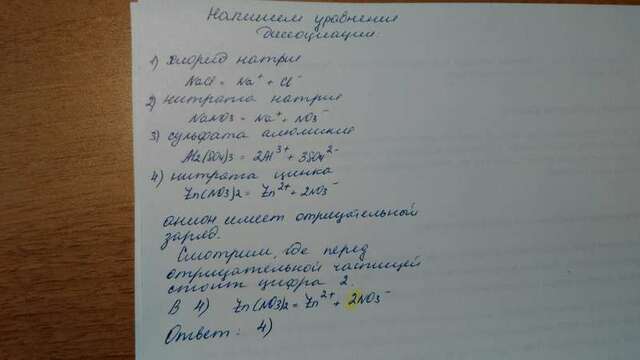 Напишем уравнения
Диссоциации.
1) хлорид натрия
NaCl = Na⁺ + Cl⁻
2) нитрата натрия
NaNO3 = Na⁺ + NO3⁻
3) сульфата алюминия
Al2(SO4)3 = 2Al³⁺ + 3SO4²⁻
4) нитрата цинка
Zn(NO3)2 = Zn²⁺ + 2NO3⁻
анион имеет отрицательной
заряд.
Смотрим, где перед
отрицательной частицей
стоит цифра 2.
В 4) Zn(NO3)2 = Zn²⁺ + 2NO3⁻
Ответ: 4)